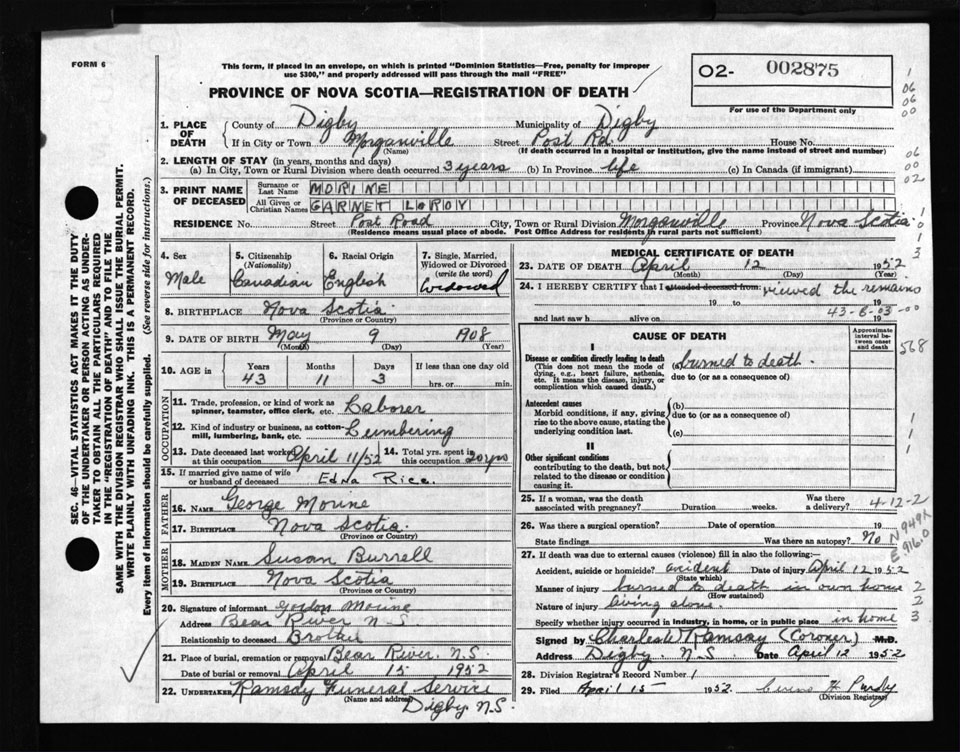 FORM 6
This form, if placed in an envelope, on which is printed "Dominion Statistics—Free, penalty for improper use $300," and properly addressed will pass through the mail "FREE"
PROVINCE OF NOVA SCOTIA—REGISTRATION OF DEATH
02- 002875
For use of the Department only
1. PLACE OF DEATH
County of Digby Municipality of Digby
If in City or Town Morganville Street Post Rd. House No.
(Name) (If death occurred in a hospital or institution, give the name instead of street and number)
2. LENGTH OF STAY (in years, months and days)
(a) In City, Town or Rural Division where death occurred 3 years (b) In Province life (c) In Canada (if immigrant)
3. PRINT NAME OF DECEASED
Surname or Last Name MORINE
All Given or Christian Names GARNET LAROY
RESIDENCE No. Street Post Road City, Town or Rural Division Morganville Province Nova Scotia
(Residence means usual place of abode. Post Office Address for residents in rural parts not sufficient)
4. Sex Male
5. Citizenship (Nationality) Canadian
6. Racial Origin English
7. Single, Married, Widowed or Divorced (write the word) Widowed
8. BIRTHPLACE Nova Scotia
(Province or Country)
9. DATE OF BIRTH May 9 1908
(Month) (Day) (Year)
10. AGE in Years 43 Months 11 Days 3 If less than one day old hrs. or min.
OCCUPATION
11. Trade, profession, or kind of work as spinner, teamster, office clerk, etc. Laborer
12. Kind of industry or business, as cotton-mill, lumbering, bank, etc. Lumbering
13. Date deceased last worked at this occupation April 11/52
14. Total yrs. spent in this occupation 20 yrs
15. If married give name of wife or husband of deceased Edna Rice.
FATHER
16. NAME George Morine
17. BIRTHPLACE Nova Scotia.
(Province or Country)
MOTHER
18. MAIDEN NAME Susan Burrell
19. BIRTHPLACE Nova Scotia
(Province or Country)
20. Signature of informant Gordon Morine
Address Bear River N S
Relationship to deceased Brother
21. Place of burial, cremation or removal Bear River. N.S.
Date of burial or removal April 15 1952
22. UNDERTAKER Ramsay Funeral Service
(Name and address) Digby N.S.
MEDICAL CERTIFICATE OF DEATH
23. DATE OF DEATH April 12 1952
(Month) (Day) (Year)
24. I HEREBY CERTIFY that I attended deceased from: viewed the remains
19 to 19
and last saw h alive on 19
43-6-03-00
CAUSE OF DEATH
Approximate interval between onset and death
I
Disease or condition directly leading to death
(This does not mean the mode of dying, e.g., heart failure, asthenia, etc. It means the disease, injury, or complication which caused death.)
(a) burned to death.
due to (or as a consequence of)
Antecedent causes
Morbid conditions, if any, giving rise to the above cause, stating the underlying condition last.
(b)
due to (or as a consequence of)
(c)
II
Other significant conditions
contributing to the death, but not related to the disease or condition causing it.
25. If a woman, was the death associated with pregnancy? Duration weeks. Was there a delivery? 4-12-2
26. Was there a surgical operation? Date of operation 19
State findings Was there an autopsy? No
27. If death was due to external causes (violence) fill in also the following:—
Accident, suicide or homicide? accident Date of injury April 12 1952
(State which)
Manner of injury burned to death in own home
(How sustained)
Nature of injury living alone.
Specify whether injury occurred in industry, in home, or in public place in home
Signed by Charles W Ramsay (Coroner) M.D.
Address Digby. N.S. Date April 12 1952
28. Division Registrar's Record Number 1
29. Filed April 15 1952 H Purdy
(Division Registrar)
SEC. 46—VITAL STATISTICS ACT MAKES IT THE DUTY OF THE UNDERTAKER OR PERSON ACTING AS UNDERTAKER TO OBTAIN ALL THE PARTICULARS REQUIRED IN THE "REGISTRATION OF DEATH" AND TO FILE THE SAME WITH THE DIVISION REGISTRAR WHO SHALL ISSUE THE BURIAL PERMIT.
WRITE PLAINLY WITH UNFADING INK. THIS IS A PERMANENT RECORD.
Every item of information should be carefully supplied. (See reverse side for instructions.)
1
06
06
00
06
00
02
1
0
1
3
568
1
1
1
N949X
E916.0
2
2
3